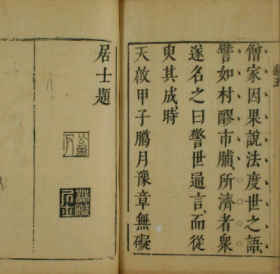 僧家因果說法度世之語
譬如村醪市脯所濟者衆
遂名之曰警世通言而從
臾其成時
天啟甲子臘月豫章無礙
居士題